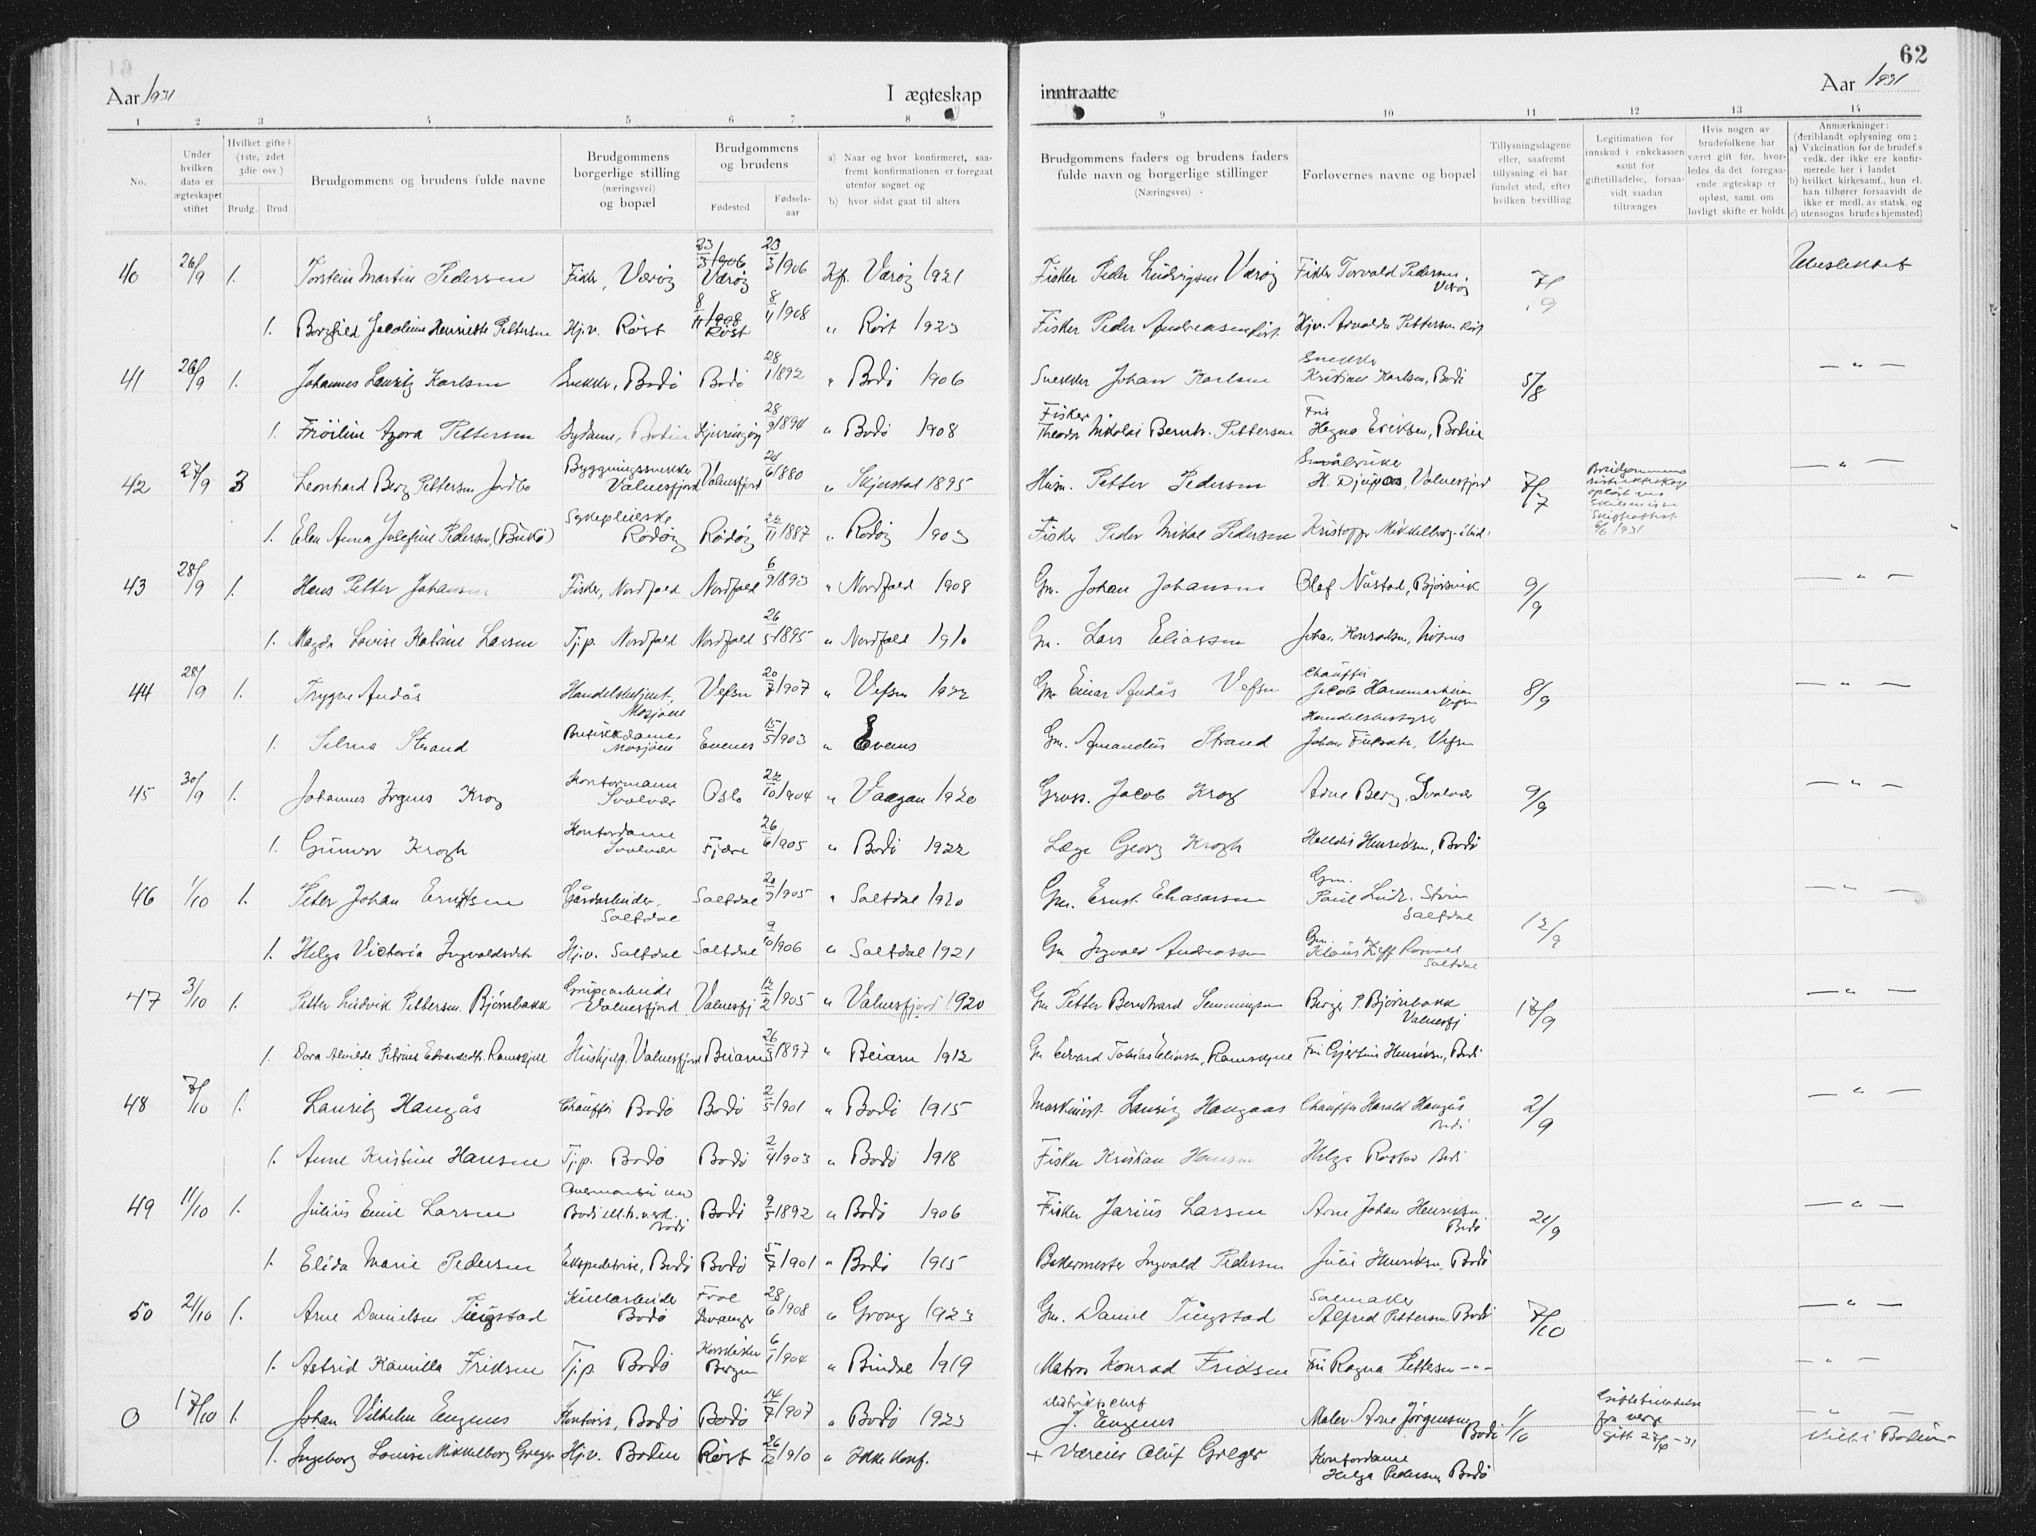 62
Aar 1931
I ægteskap
inntraatte
Aar 1931
1 2 3 4 5 6 7 8 9 10 11 12 13 14
No.
Under hvilken dato er ægteskapet stiftet
Hvilket gifte? (1ste, 2det 3die osv.)
Brudg. Brud
Brudgommens og brudens fulde navne
Brudgommens borgerlige stilling (næringsvei) og bopæl
Brudgommens og brudens
Fødested
Fødsels-aar
a) Naar og hvor konfirmeret, saafremt konfirmationen er foregaat utenfor sognet og
b) hvor sidst gaat til alters
Brudgommens faders og brudens faders fulde navn og borgerlige stillinger (Næringsvei)
Forlovernes navne og bopæl
Tillysningsdagene eller, saafremt tillysning ei har fundet sted, efter hvilken bevilling
Legitimation for innskud i enkekassen samt for giftetilladelse, forsaavidt saadan tiltrænges
Hvis nogen av brudefolkene har været gift før, hvorledes da det foregaaende ægteskap er opløst, samt om lovligt skifte er holdt
Anmærkninger: (deriblandt oplysning om:
a) Vakcination for de brudef s vedk. der ikke ere konfirmerede her i landet
b) hvilket kirkesamf., hun el. han tilhører forsaavidt de ikke er medl. av statsk. og
c) utensogns brudes hjemsted)
40 26/9 1. Torstein Martin Pedersen Fisker, Værøy Værøy 23/3 1906 Kf. Værøy 1921 Fisker Peder Ludvigsen Værøy Fisker Torvald Pedersen Værøy 7/9 Ubeslektet
1. Borghild Jacobine Henriette Pettersen Hjv. Røst Røst 8/11 1908 " Røst 1923 Fisker Peder Andreasen Røst Hjv. Arnalda Pettersen Røst
41 26/9 1. Johannes Lauritz Karlsen Snekker, Bodø Bodø 28/1 1892 " Bodø 1906 Snekker Johan Karlsen Snekker Kristian Karlsen, Bodø 5/8 — " —
1. Frøiline Azora Pettersen Sydame, Bodin Kjerringøy 28/9 1894 " Bodø 1908 Fisker Theodor Nikolai Bernh. Pettersen Fru Hegna Eriksen, Bodin
42 27/9 3 Leonhard Berg Pettersen Jordbo Bygningssnekker Valnesfjord Valnesfjord 24/6 1880 " Skjerstad 1895 Husm. Petter Pedersen Småbruker H. Djupos, Valnesfjord 7/7 — " —
1. Elen Anna Josefine Pedersen (Buko) Sykepleierske Rødøy Rødøy 22/11 1887 " Rødøy 1903 Fisker Peder Mikal Pedersen Kristoffer Mikkelborg
43 28/9 1. Hans Petter Johansen Fisker, Nordfold Nordfold 6/9 1893 " Nordfold 1908 Gm. Johan Johansen Olaf Nústad, Bjørsvik 9/9 — " —
1. Magda Lovise Katrine Larsen Tj.p. Nordfold Nordfold 26/5 1895 " Nordfold 1910 Gm. Lars Eliassen Johan Konradsen,
44 28/9 1. Trygve Andås Handelsbetjent, Mosjøen Vefsn 20/7 1907 " Vefsn 1922 Gm. Einar Andås Vefsn Chauffør Jacob Hammarstrøm Vefsn 8/9 — " —
1. Selma Strand Butikkdame Mosjøen Evenes 15/5 1903 " Evenes Gm. Amandus Strand Handelsbestyrer Johan Vefsn
45 30/9 1. Johannes Irgens Krog Kontormann Svolvær Oslo 22/10 1904 " Vaagan 1920 Gross. Jacob Krog Arne Berg, Svolvær 9/9 — " —
1. Gunvor Krogh Kontordame Svolvær Fjære 26/6 1905 " Bodø 1922 Læge Georg Krogh Halldis Henriksen, Bodø
46 1/10 1. Peter Johan Erntsen Gårdarbeider, Saltdal Saltdal 20/9 1905 " Saltdal 1920 Gm. Ernst Eliasarssen Gm. Paul Ludv. Storm Saltdal 12/9 — " —
1. Helga Victoria Ingvaldsdtr Hjv. Saltdal Saltdal 9/10 1906 " Saltdal 1921 Gm Ingvald Andreassen Gm. Klaus Saltdal
47 3/10 1. Petter Ludvik Pettersen Bjørnbakk Grubearbeider Valnesfjord Valnesfj 12/2 1905 " Valnesfjord 1920 Gm Petter Bernhard Semmingsen Birger P. Bjørnbakk Valnesfj 17/9 — " —
1. Dora Alvilde Petrine Edvardsdtr. Ramskjell Hushjelp, Valnesfjord Beiarn 26/5 1897 " Beiarn 1912 Gm Edvard Tobias Eliassen, Ramskjell Fru Gjertine Henriksen, Bodø
48 7/10 1. Lauritz Haugås Chauffør Bodø Bodø 2/5 1901 " Bodø 1915 Maskinist Lauritz Haugaas Chauffør Harald Haugås Bodø 2/9 — " —
1. Anne Kristine Hansen Tj.p. Bodø Bodø 2/4 1903 " Bodø 1918 Fisker Kristian Hansen Helga Bodø
49 11/10 1. Julius Emil Larsen Bodø Bodø 9/5 1892 " Bodø 1906 Fisker Jarius Larsen Arne Johan Henriksen Bodø 21/9 — " —
1. Elida Marie Pedersen Ekspeditrise, Bodø Bodø 5/7 1901 " Bodø 1915 Bakermester Ingvald Pedersen Julie Henriksen, Bodø
50 21/10 1. Arne Danielsen Tingstad Kullarbeider Bodø Frol Levanger 28/6 1908 " Grong 1923 Gm. Daniel Tingstad Salmaker Alfred Pettersen Bodø 7/10 — " —
1. Astrid Kamilla Friksen Tj.p. Bodø Korskirken Bergen 6/1 1904 " Bindal 1919 Matros Konrad Fridsen Fru Ragna Pettersen — " —
0 17/10 1. Johan Vilhelm Engens Kontorist, Bodø Bodø 14/7 1907 " Bodø 1923 J. Engens Maler Arne Jørgensen Bodø 1/10 — " —
1. Ingeborg Louise Mikkelborg Greger Hjv. Bodin Røst 26/12 1910 " Ikke konf. + Væreier Oluf Greger Kontordame Helga Pedersen Bodø